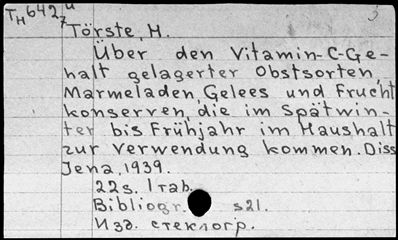 Tн642 и
7
3
Törste, H.
Über den Vitamin-C-Ge-
halt gelagerter Obstsorten,
Marmeladen, Gelees und Frucht
konserven, die im Spätwin-
ter bis Frühjahr im Haushalt
zur Verwendung kommen. Diss
Jena, 1939.
22s. 1 tab.
Bibliogr. s21.
Изд. стеклогр.